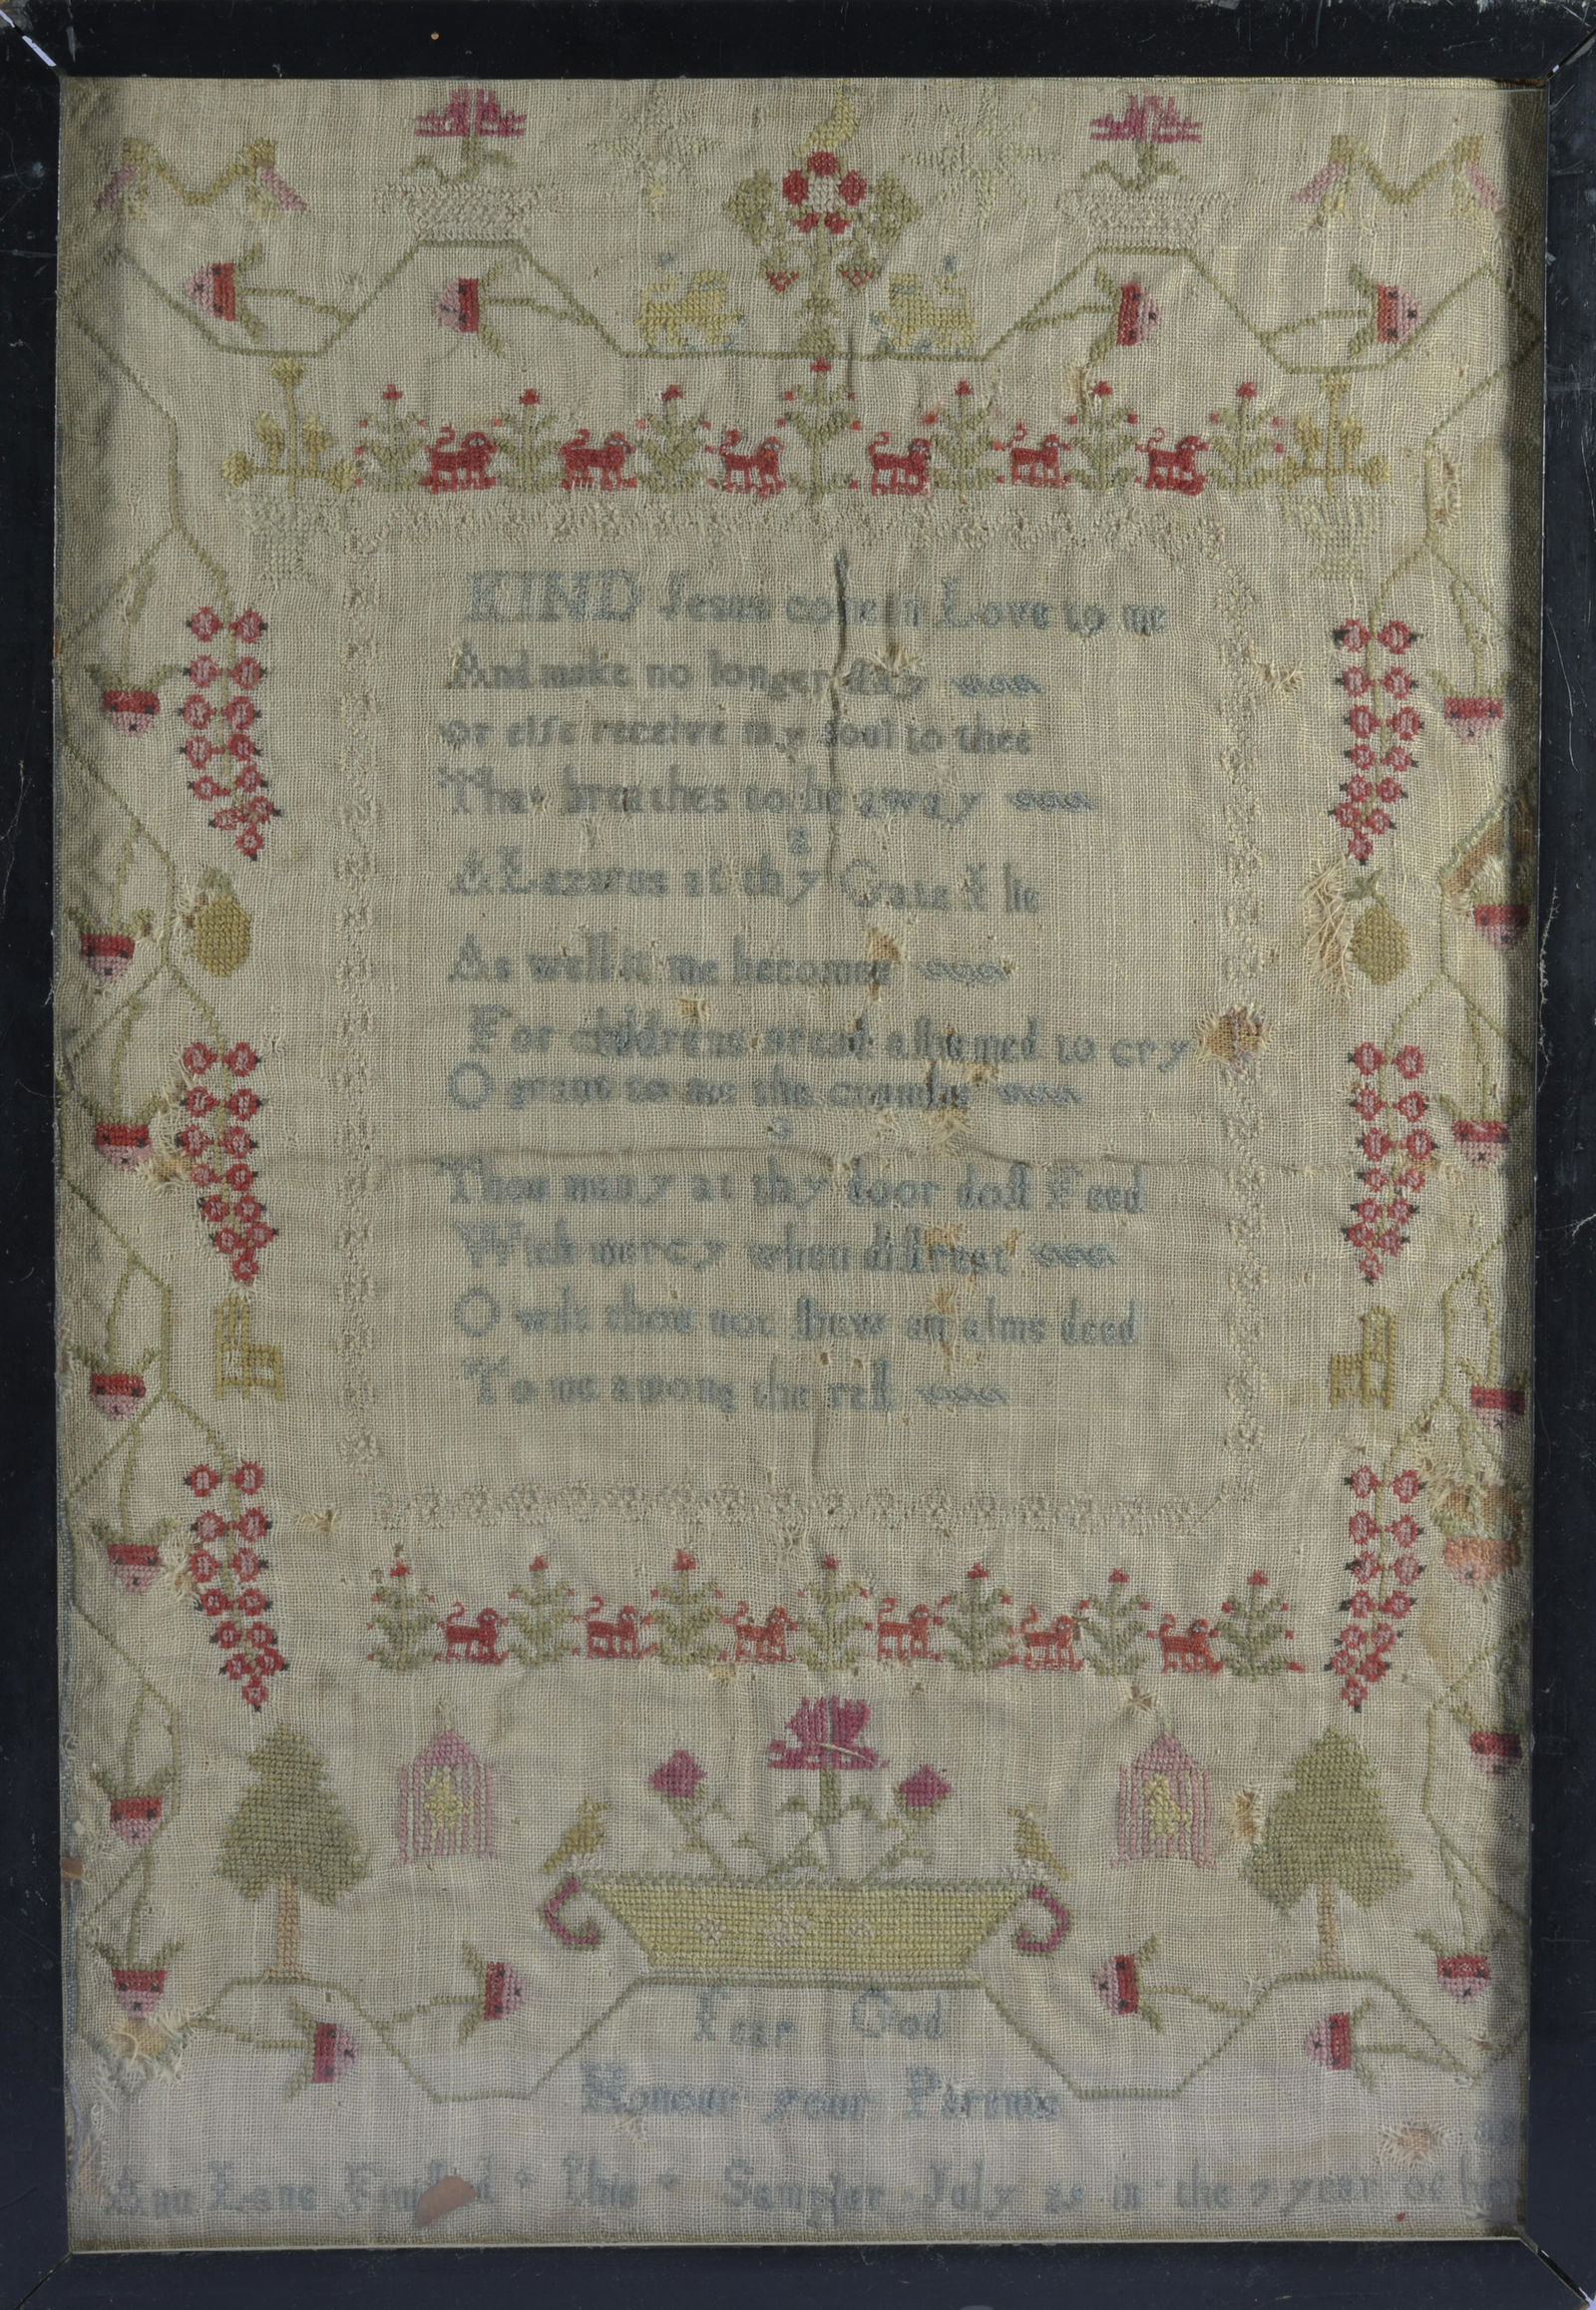 KIND Jesus come in Love to me
And make no longer ſtay
or elſe receive my Soul to thee
That breathes to be away
2
A Lazarus at thy Gate I lie
As well it me becomes
For childrens bread aſhamed to cry
O grant to me the crumbs
3
Thou many at thy door doſt Feed
With mercy when diſtreſt
O wilt thou not ſhew an alms deed
To me among the reſt
Fear God
Honour your Parents
Ann Lane Finiſhed this Sampler July 25 in the 7 year of her